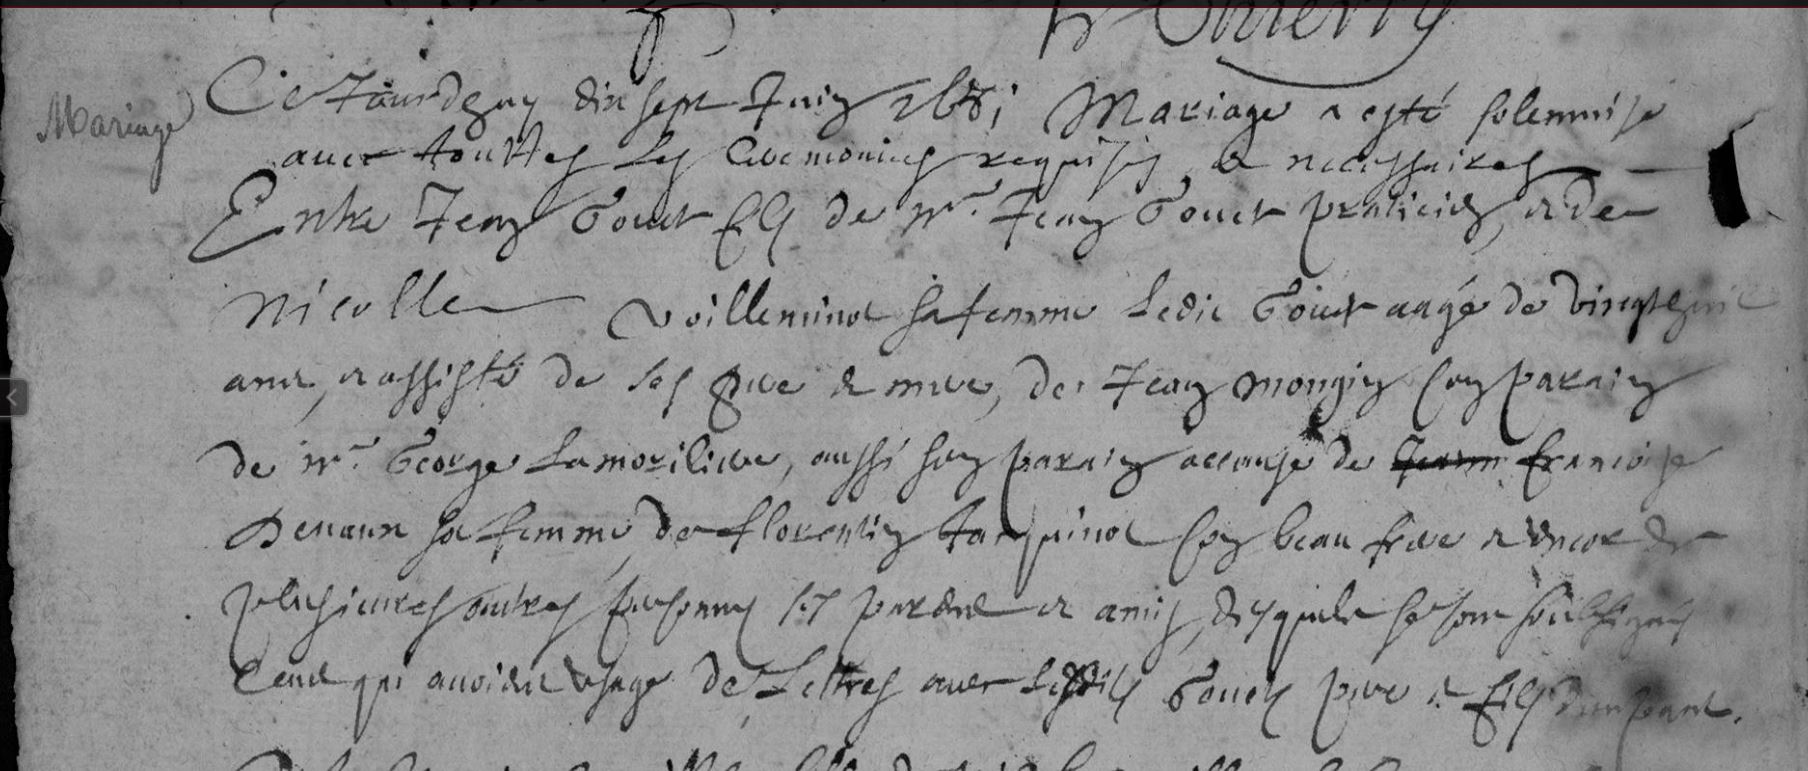 Thierry
Mariage
Ce Jourdhuy dix sept Juin 1681 Mariage a esté solemnise
avec touttes les Ceremonies requises et necessaires
Entre Jean Gouet fils de Mr. Jean Gouet praticien, et de
Nicolle Voilleminot sa femme ledit Gouet aagé de vingt
ans, et assisté de ses pere et mere, de Jean Mongin son parain
de Mr. George Lamoriliere, aussi son parain a cause de Francoise
sa femme, de Florentin Tarquinot son beau frere et encor de
plusieures autres personnes ses parens et amis, desquels se sont soubsignes
Ceux qui avoient usage de Lettres avec lesdits Gouets pere et fils